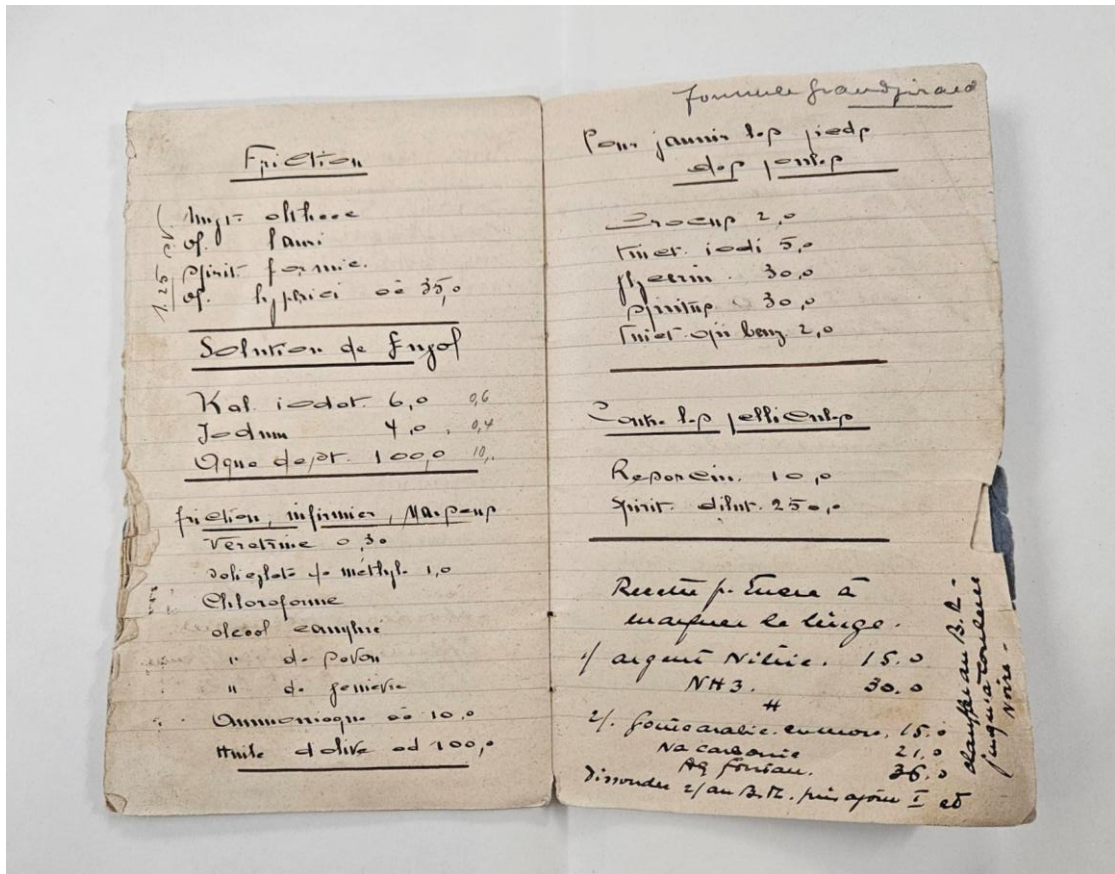 Friction
Ungt. althaeae
ol. lauri
spirit. formic.
ol. hyperici āā 35,0
1.25 p.V.
Solution de Lugol
Kal. iodat. 6,0 0,6
Jodum 4,0 0,4
Aqua dest. 100,0 10,
friction, infirmier,
Veratrine 0,30
salicylate de méthyle 1,0
Chloroforme
alcool camphré
" de savon
" de genièvre
Ammoniaque āā 10,0
Huile d'olive ad 100,0
formule Grandgirard
Pour jaunir les pieds
des poules
Crocus 2,0
tinct. iodi 5,0
glycerin. 30,0
spiritus 30,0
tinct. opii benz. 2,0
Contre les pellicules
Resorcin. 10,0
Spirit. dilut. 250,0
Recette p. Encre à
marquer le linge.
1/ argent Nitric. 15.0
NH3. 30.0
#
2/. gom̄earabic. 15.0
Na carbonic 21.0
Aq fontan. 36.0
Dissoudre 2/ au B.M. puis ajouter I et
chauffer au B.M.
jusqu'à couleur
noire -